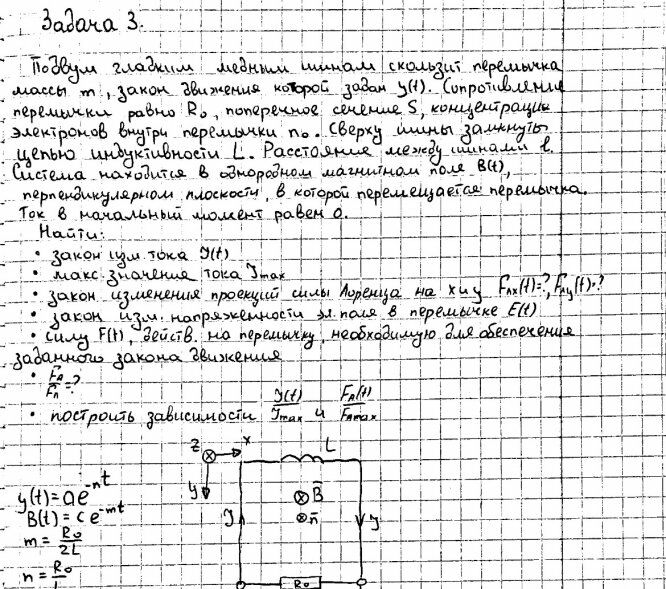 Задача 3.
По двум гладким медным шинам скользит перемычка
массы m, закон движения которой задан y(t). Сопротивление
перемычки равно R₀, поперечное сечение S, концентрация
электронов внутри перемычки n₀. Сверху шины замкнуты
цепью индуктивности L. Расстояние между шинами l.
Система находится в однородном магнитном поле B(t),
перпендикулярном плоскости, в которой перемещается перемычка.
Ток в начальный момент равен 0.
Найти:
• закон изм. тока J(t)
• макс. значение тока Jmax
• закон изменения проекций силы Лоренца на x и y Fлx(t)=?, Fлy(t)=?
• закон изм. напряженности эл. поля в перемычке E(t)
• силу F(t), действ. на перемычку, необходимую для обеспечения
заданного закона движения
• Fа/Fл=?
• построить зависимости J(t)/Jmax и FА(t)/FАmax
z x L
y
y(t)=ae^-nt
B̄
B(t)=ce^-mt
n̄
J J
m=R₀/2L
n=R₀/
R₀